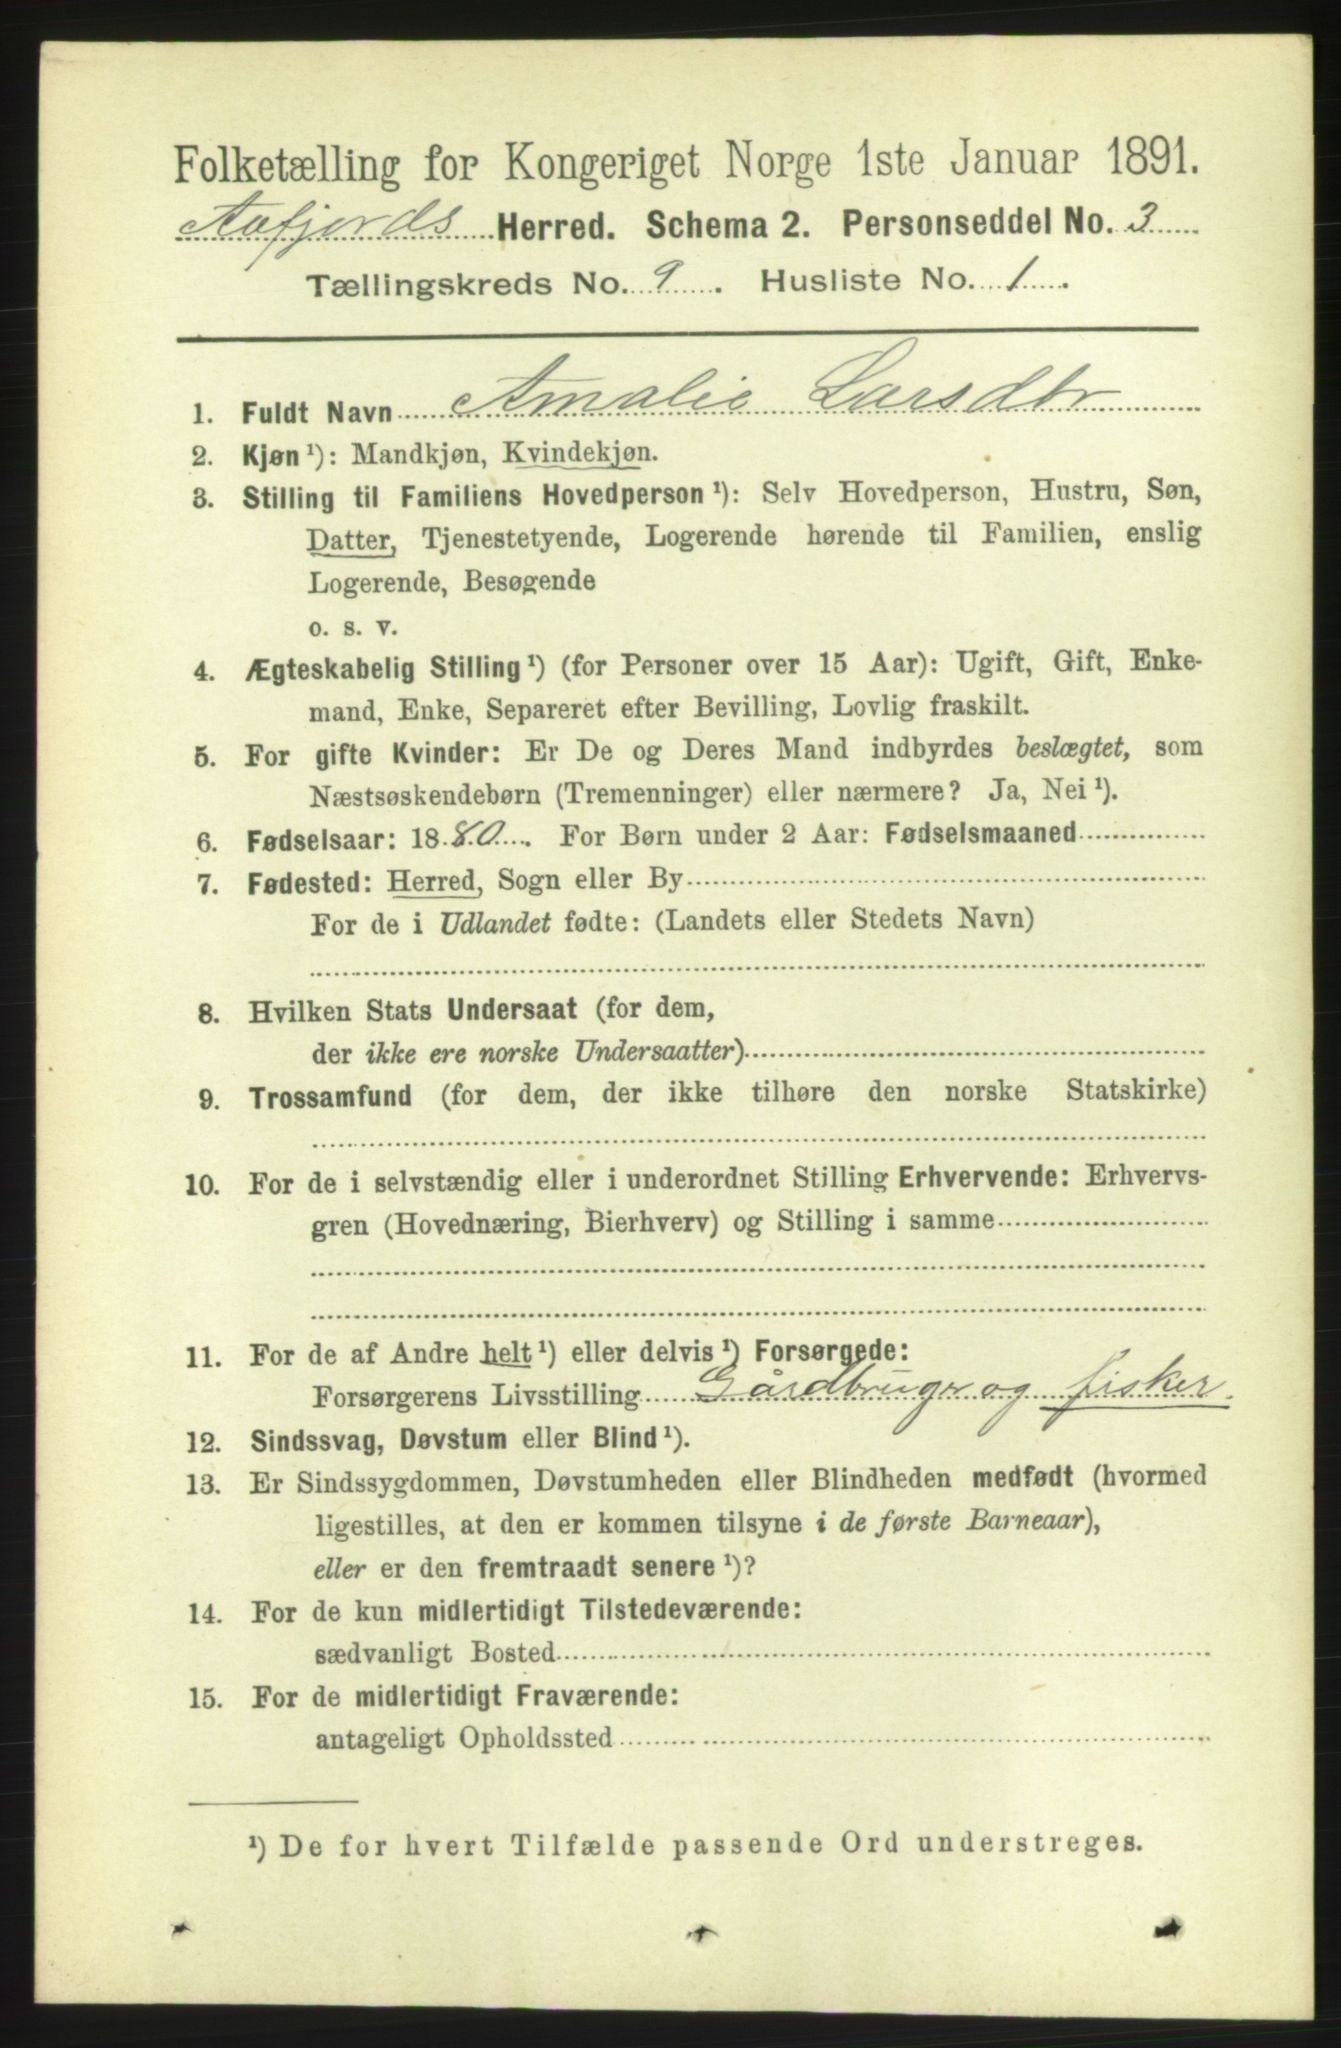 Folketælling for Kongeriget Norge 1ste Januar 1891.
Aafjords Herred. Schema 2. Personseddel No. 3
Tællingskreds No. 9. Husliste No. 1.
1. Fuldt Navn Amalie Larsdtr
2. Kjøn ¹): Mandkjøn, Kvindekjøn.
3. Stilling til Familiens Hovedperson ¹): Selv Hovedperson, Hustru, Søn,
Datter, Tjenestetyende, Logerende hørende til Familien, enslig
Logerende, Besøgende
o. s. v.
4. Ægteskabelig Stilling ¹) (for Personer over 15 Aar): Ugift, Gift, Enke-
mand, Enke, Separeret efter Bevilling, Lovlig fraskilt.
5. For gifte Kvinder: Er De og Deres Mand indbyrdes beslægtet, som
Næstsøskendebørn (Tremenninger) eller nærmere? Ja, Nei ¹).
6. Fødselsaar: 1880. For Børn under 2 Aar: Fødselsmaaned
7. Fødested: Herred, Sogn eller By
For de i Udlandet fødte: (Landets eller Stedets Navn)
8. Hvilken Stats Undersaat (for dem,
der ikke ere norske Undersaatter)
9. Trossamfund (for dem, der ikke tilhøre den norske Statskirke)
10. For de i selvstændig eller i underordnet Stilling Erhvervende: Erhvervs-
gren (Hovednæring, Bierhverv) og Stilling i samme
11. For de af Andre helt ¹) eller delvis ¹) Forsørgede:
Forsørgerens Livsstilling Gårdbruger og fisker.
12. Sindssvag, Døvstum eller Blind ¹).
13. Er Sindssygdommen, Døvstumheden eller Blindheden medfødt (hvormed
ligestilles, at den er kommen tilsyne i de første Barneaar),
eller er den fremtraadt senere ¹)?
14. For de kun midlertidigt Tilstedeværende:
sædvanligt Bosted
15. For de midlertidigt Fraværende:
antageligt Opholdssted
¹) De for hvert Tilfælde passende Ord understreges.